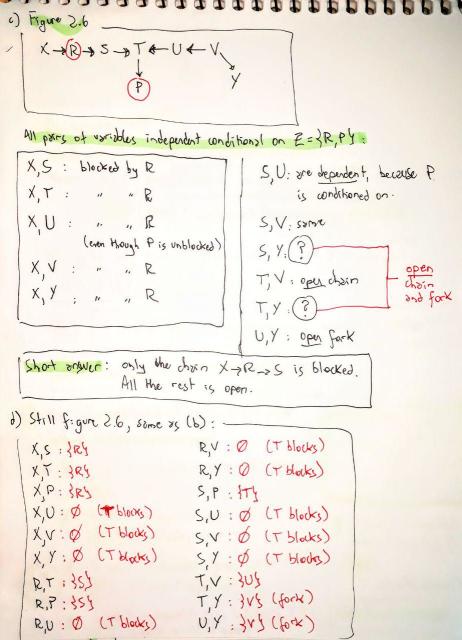 c) Figure 2.6
X → R → S → T ← U ← V
Y
P
All pairs of variables independent conditional on Z = {R, P}:
X, S : blocked by R
X, T : " " R
X, U : " " R
(even though P is unblocked)
X, V : " " R
X, Y : " " R
S, U: are dependent, because P
is conditioned on.
S, V: same
S, Y: ?
T, V: open chain
T, Y: ?
U, Y: open fork
open
chain
and fork
Short answer: only the chain X→R→S is blocked.
All the rest is open.
d) Still figure 2.6, same as (b):
X, S : {R}
X, T : {R}
X, P : {R}
X, U : ∅ (T blocks)
X, V : ∅ (T blocks)
X, Y : ∅ (T blocks)
R, T : {S}
R, P : {S}
R, U : ∅ (T blocks)
R, V : ∅ (T blocks)
R, Y : ∅ (T blocks)
S, P : {T}
S, U : ∅ (T blocks)
S, V : ∅ (T blocks)
S, Y : ∅ (T blocks)
T, V : {U}
T, Y : {V} (fork)
U, Y : {V} (fork)